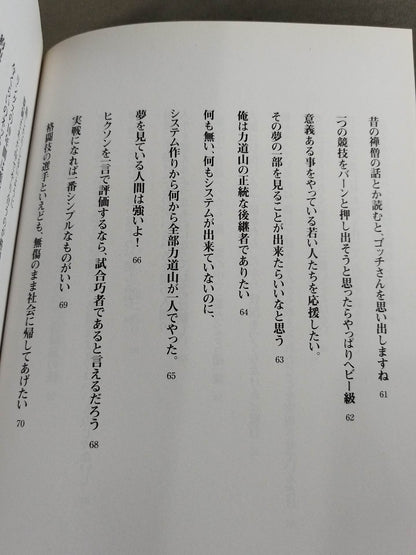 昔の禅僧の話とか読むと、ゴッチさんを思い出しますね 61
一つの競技をバーンと押し出そうと思ったらやっぱりヘビー級 62
意義ある事をやっている若い人たちを応援したい。
その夢の一部を見ることが出来たらいいなと思う 63
俺は力道山の正統な後継者でありたい 64
何も無い、何もシステムが出来ていないのに、
システム作りから何から全部力道山が一人でやった。 65
夢を見ている人間は強いよ! 66
ヒクソンを一言で評価するなら、試合巧者であると言えるだろう 68
実戦になれば一番シンプルなものがいい 69
格闘技の選手といえども、無傷のまま社会に帰してあげたい 70